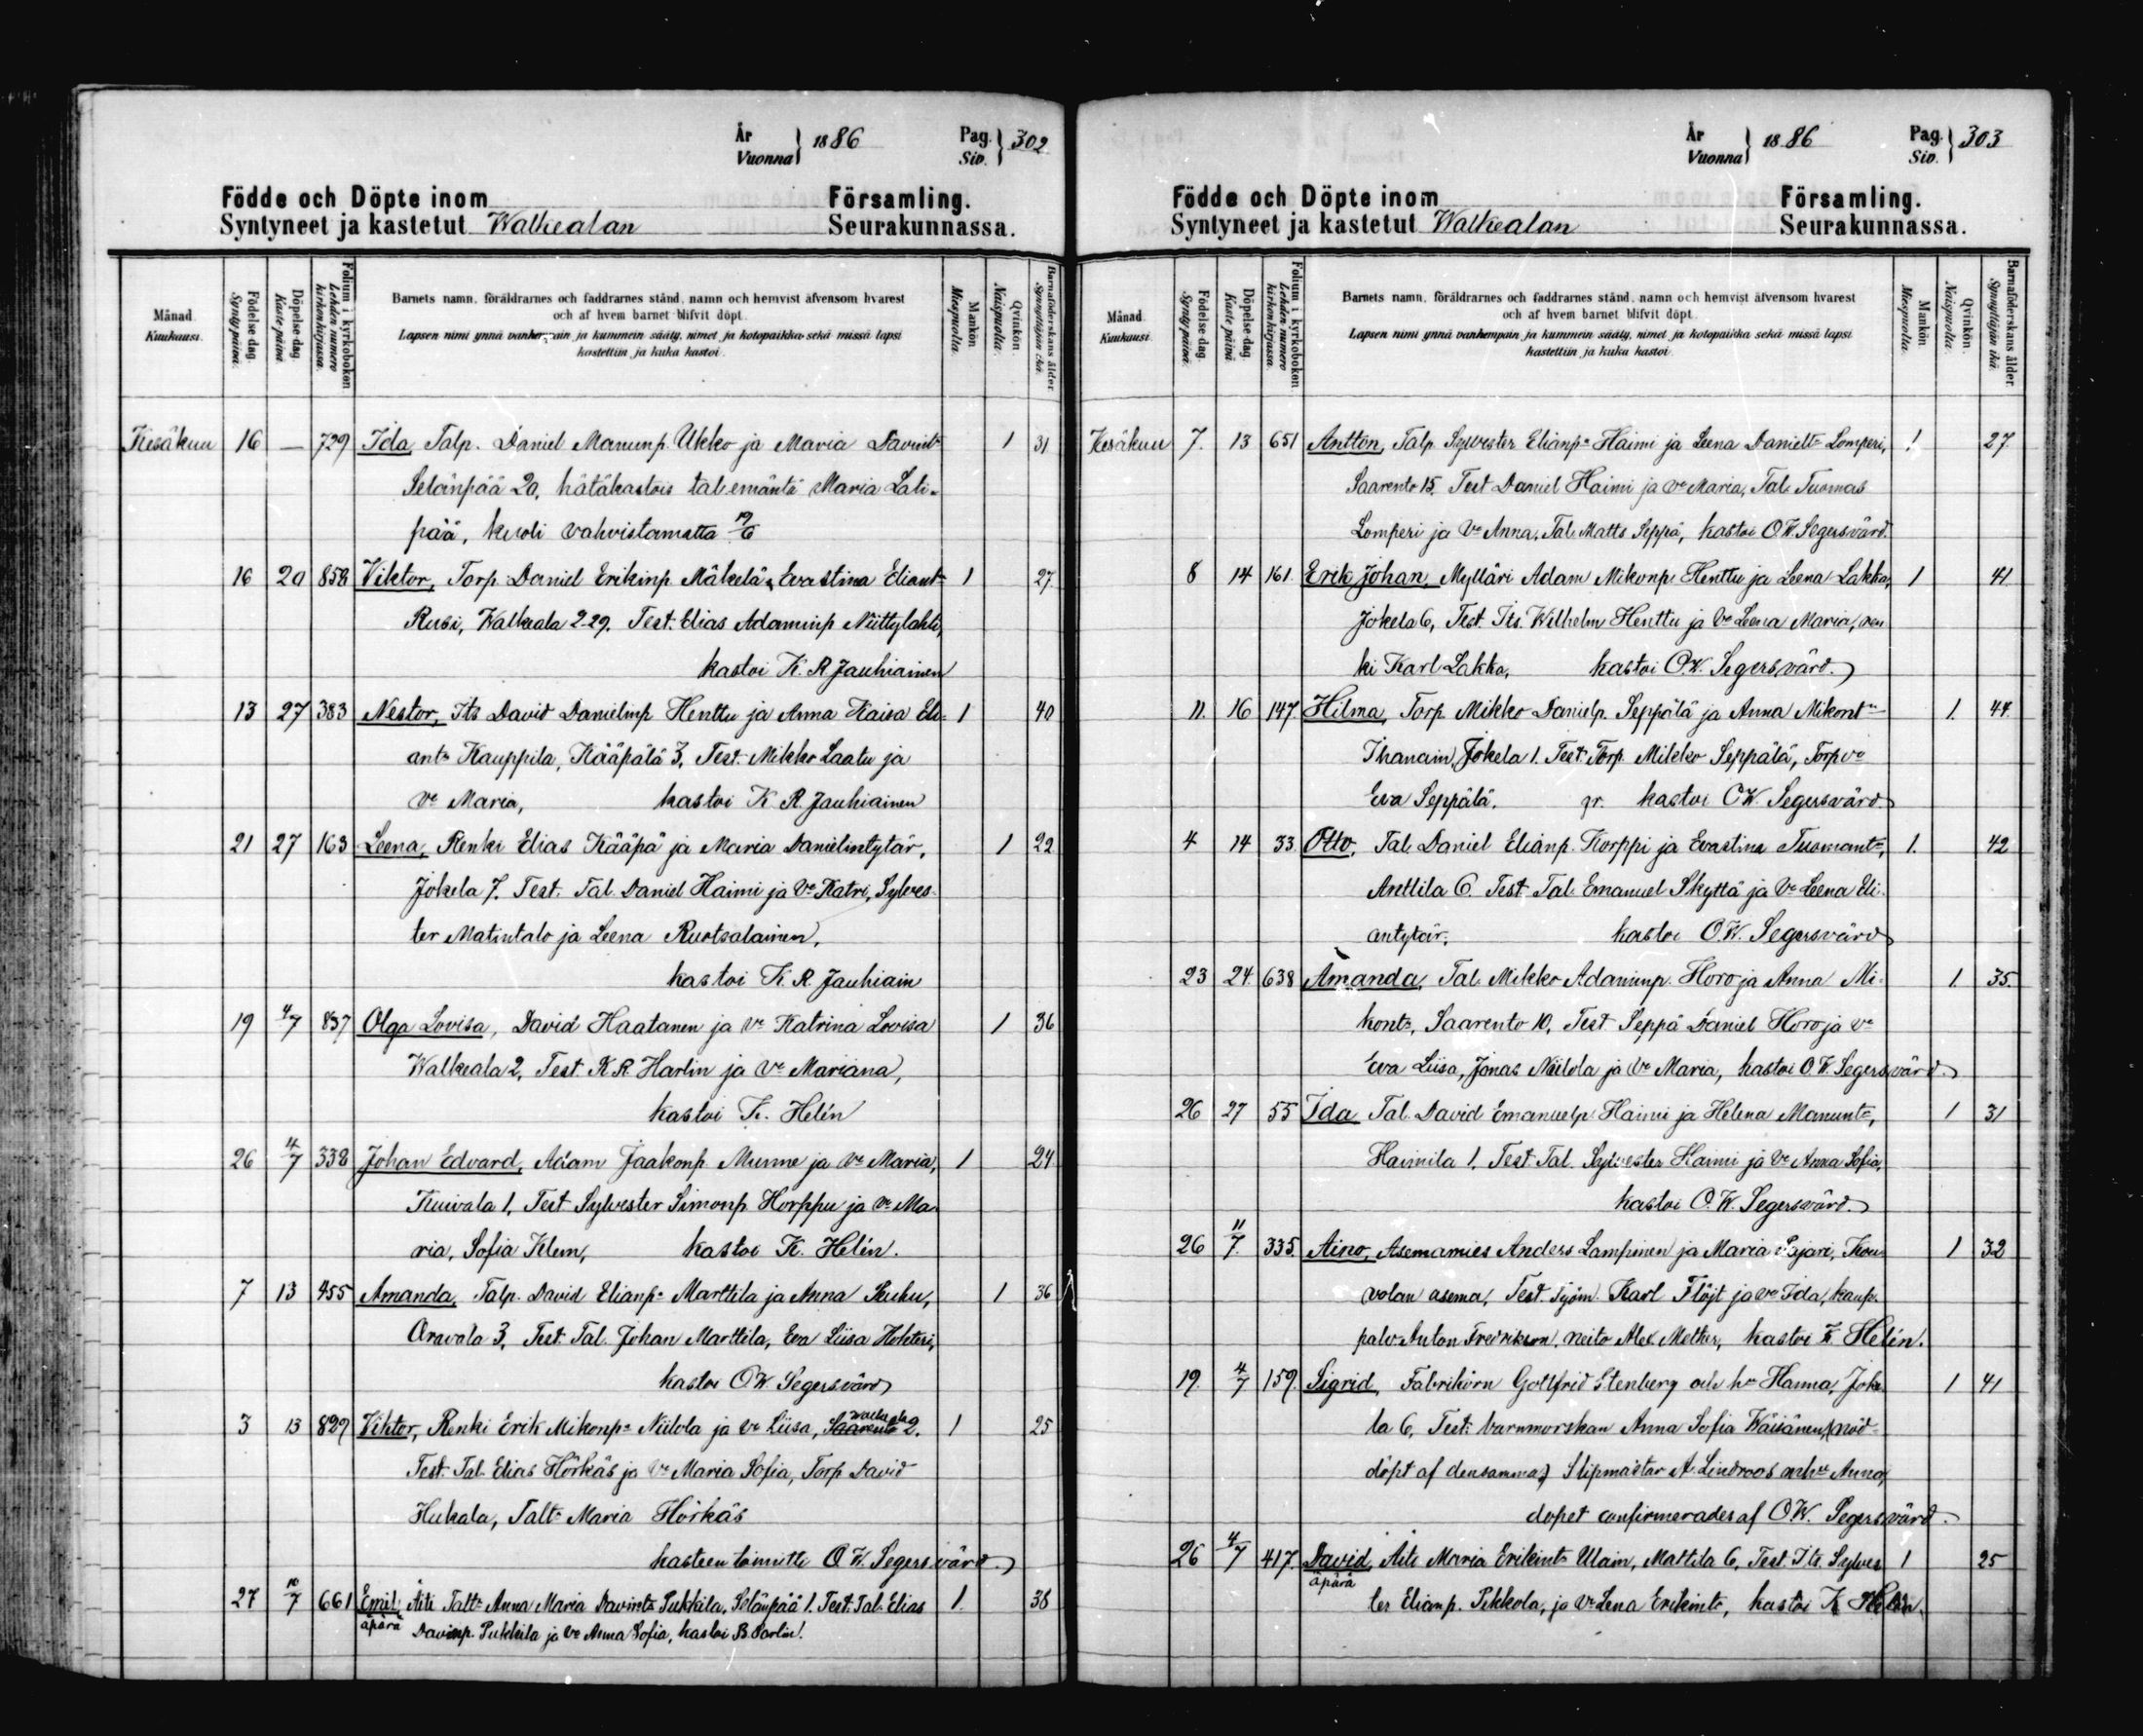 År
Vuonna } 1886
Pag.
Siv. } 302
Födde och Döpte inom Församling.
Syntyneet ja kastetut Walkealan Seurakunnassa.
Månad
Kuukausi.
Födelse-dag.
Synty päivä.
Döpelse-dag.
Kaste päivä.
Folium i kyrkoboken.
Lehden numero kirkonkirjassa.
Barnets namn, föräldrarnes och faddrarnes stånd, namn och hemvist äfvensom hvarest
och af hvem barnet blifvit döpt.
Lapsen nimi ynnä vanhempain ja kummein sääty, nimet ja kotopaikka sekä missä lapsi
kastettiin ja kuka kastoi.
Mankön
Miespuolia.
Qvinkön.
Naispuolia.
Barnaföderskans ålder.
Synnyttäjän ikä.
Kesäkuu 16 — 729 Ida, Talp. Daniel Manunp. Ukko ja Maria Davint 1 31
Selänpää 20, hätäkastois tal. emäntä Maria Lali-
pää, kuoli vahvistamatta 19/6
16 20 858 Viktor, Torp. Daniel Erikinp. Mäkelä, Evastina Eliant- 1 27.
Rusi, Walkeala 2-29. Test. Elias Adaminp Niittylahti,
kastoi K. R. Jauhiainen
13 27 383 Nestor, Its David Danielinp Henttu ja Anna Kaisa Eli- 1 40
ants Kauppila, Kääpälä 3, Test. Mikko Laatu ja
vo Maria, kastoi K. R. Jauhiainen
21 27 163 Leena, Renki Elias Kääpä ja Maria Danielintytär, 1 22
Jokela 7. Test. Tal. Daniel Haimi ja Vo Katri, Sylves-
ter Matintalo ja Leena Ruotsalainen,
kastoi K. R. Jauhiain
19 4/7 837 Olga Lovisa, David Haatanen ja vo Katrina Lovisa 1 36
Walkeala 2, Test. K. R. Harlin ja Vo Mariana,
kastoi K. Helén
26 4/7 338 Johan Edvard, Adam Jaakonp. Munne ja Vo Maria, 1 24
Kuivala 1, Test Sylvester Simonp. Horppu ja Vo Ma-
ria, Sofia Klem, kastoi K. Helén.
7 13 455 Amanda, Talp. David Elianp. Marttila ja Anna Suku, 1 36
Oravala 3, Test. Tal. Johan Marttila, Eva Liisa Hokteri,
kastoi O W. Segersvärd
3 13 829 Viktor, Renki Erik Mikonp. Niilola ja Vo Liisa, Saarento Walkeala 2. 1 25
Test. Tal. Elias Hörkäs ja Vo Maria Sofia, Torp David
Hukala, Talt. Maria Hörkäs
kasteen toimitti O W. Segersvärd.
27 10/7 661 Emil, Äiti Talt. Anna Maria Davints Pukkila, Selänpää 1. Test. Tal. Elias 1. 38
äpärä Davinp. Pukkila ja Vo Anna Sofia, kastoi B. Parlin.
År
Vuonna } 1886
Pag.
Siv. } 303
Födde och Döpte inom Församling.
Syntyneet ja kastetut Walkealan Seurakunnassa.
Månad
Kuukausi.
Födelse-dag.
Synty päivä.
Döpelse-dag.
Kaste päivä.
Folium i kyrkoboken.
Lehden numero kirkonkirjassa.
Barnets namn, föräldrarnes och faddrarnes stånd, namn och hemvist äfvensom hvarest
och af hvem barnet blifvit döpt.
Lapsen nimi ynnä vanhempain ja kummein sääty, nimet ja kotopaikka sekä missä lapsi
kastettiin ja kuka kastoi.
Mankön
Miespuolia.
Qvinkön.
Naispuolia.
Barnaföderskans ålder.
Synnyttäjän ikä.
Kesäkuu 7. 13 651 Antton, Talp. Sylvester Elianp. Haimi ja Leena Danielt. Lomperi, 1 27
Saarento 15, Test Daniel Haimi ja vo Maria, Tal. Tuomas
Lomperi ja Vo Anna, Tal. Matts Seppä, kastoi O W. Segersvärd.
8 14 161. Erik Johan, Mylläri Adam Mikonp. Henttu ja Leena Lakka, 1 41
Jokela 6, Test. Its. Wilhelm Henttu ja Vo Leena Maria, ren
ki Karl Lakka, kastoi O. W. Segersvärd.
11. 16 147 Hilma, Torp. Mikko Danielp. Seppälä ja Anna Mikont- 1. 44.
Ihanain, Jokela 1. Test. Torp. Mikko Seppälä, Torp. vo
Eva Seppälä, gr. kastoi O W. Segersvärd.
4 14 33 Otto, Tal. Daniel Elianp. Korppi ja Evastina Tuomant-, 1. 42
Anttila 6. Test Tal. Emanuel Skyttä ja Vo Leena Eli-
antytär, kastoi O. W. Segersvärd
23 24 638 Amanda, Tal. Mikko Adaminp. Horo ja Anna Mi- 1. 35
konts, Saarento 10, Test. Seppä Daniel Horo ja vo
Eva Liisa, Jonas Niilola ja Vo Maria, kastoi O. W. Segersvärd.
26 27 55 Ida Tal. David Emanuelp. Haimi ja Helena Manunt-, 1 31
Haimila 1, Test. Tal. Sylvester Haimi ja Vo Anna Sofia,
kastoi O. W. Segersvärd.
26 11/7 335 Aino, Asemamies Anders Lampinen ja Maria Sajari, Kou- 1 32
volan asema, Test. Työm. Karl Flöjt ja vo Ida, kaup.
palv. Anton Fredrikson, neito Alex. Mether, kastoi K. Helén.
19. 4/7 159. Sigrid, Fabrikörn Gottfrid Stenberg och hu Hanna, Joke 1 41
la 6, Test. barnmorskan Anna Sofia Wäisänen, (nöd-
döpt af densamma) Slipmästar A. Lindroos mhu Anna,
dopet confirmerades af O W. Segersvärd.
26 4/7 417. David, Äiti Maria Erikints Ulain, Mattila 6, Test. Its. Sylves 1 25
äpärä ter Elianp. Pekkola, ja Vo Lena Erikints, kastoi K Helén.